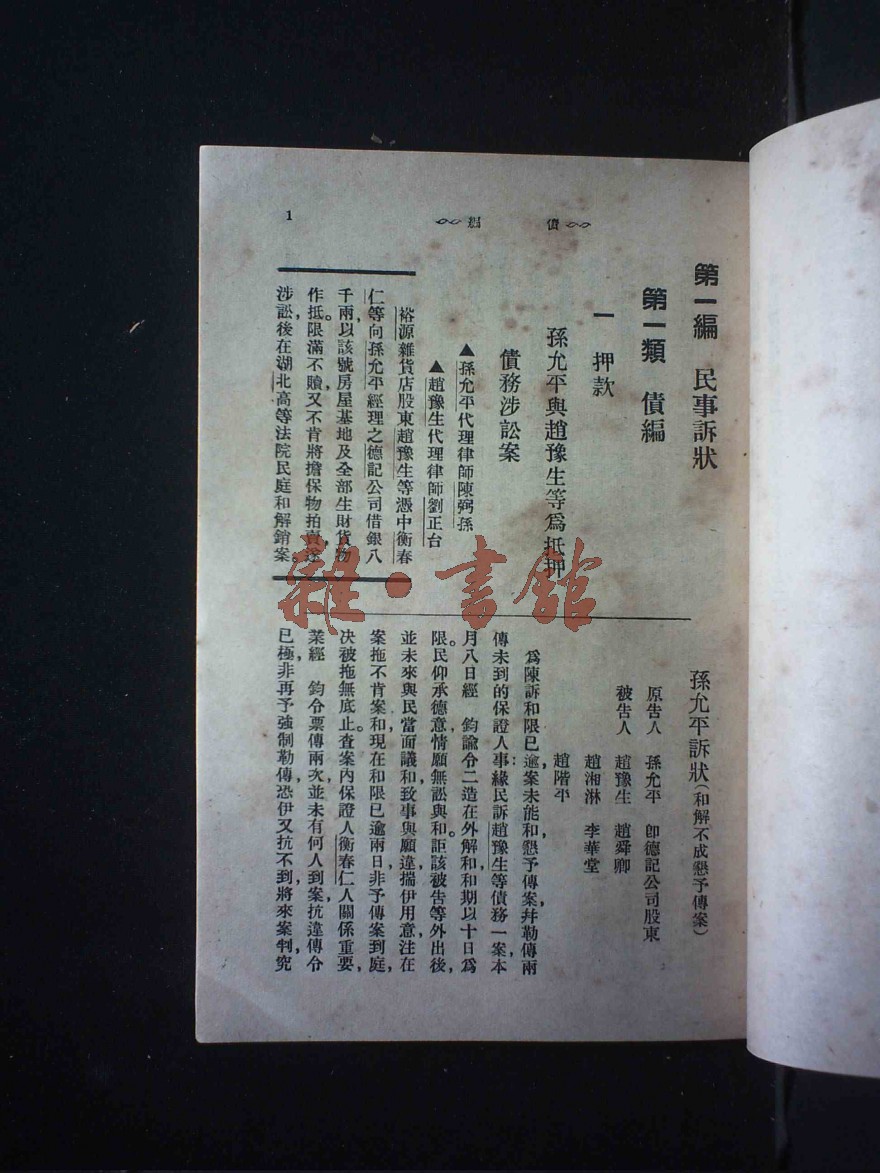 債編
1
第一編　民事訴狀
第一類　債編
一　押款
孫允平與趙豫生等爲抵押
債務涉訟案
▲孫允平代理律師陳弼孫
▲趙豫生代理律師劉正台
裕源雜貨店股東趙豫生等憑中衡春
仁等向孫允平經理之德記公司借銀八
千兩，以該號房屋基地及全部生財貨物
作抵。限滿不贖，又不肯將擔保物拍賣，遂
涉訟，後在湖北高等法院民庭和解銷案。
孫允平訴狀（和解不成懇予傳案）
原告人　孫允平　卽德記公司股東
被告人　趙豫生　趙舜卿
趙湘淋　李華堂
趙階平
爲陳訴和限已逾，案未能和，懇予傳案幷勒傳兩
傳未到的保證人事：緣民訴趙豫生等債務一案，本
月八日經　鈞諭令二造在外解和，和期以十日爲
限。民仰承德意，情願無訟與和。詎該被告等外出後，
並未來與民當面議和，致事與願違，揣伊用意，注在
案拖不肯案和，現在和限已逾兩日，非予傳案到庭，
决被拖無底止。查案內保證人衡春仁人關係重要，
業經　鈞令票傳兩次，並未有何人到案，抗違傳令
已極，非再予強制勒傳，恐伊又抗不到，將來案判究
雜·書館